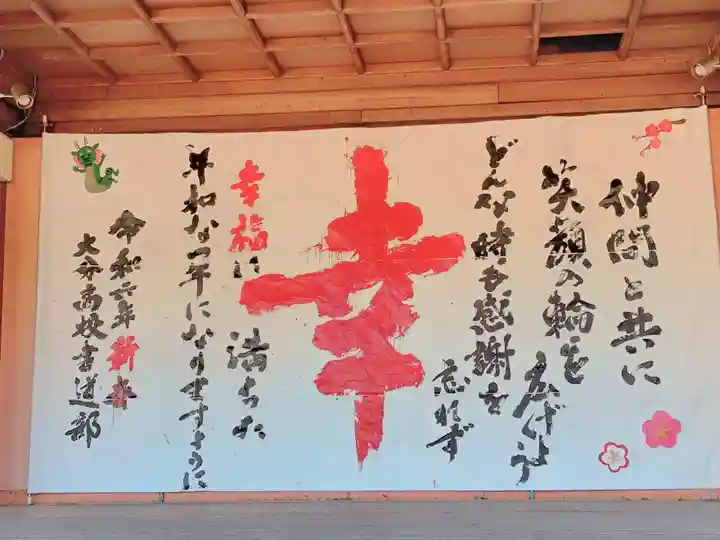 仲間と共に
笑顔の輪を
広げよう
どんな時も感謝を
忘れず
幸
幸福に
満ちた
平和な一年になりますように
令和六年新春
大分高校書道部